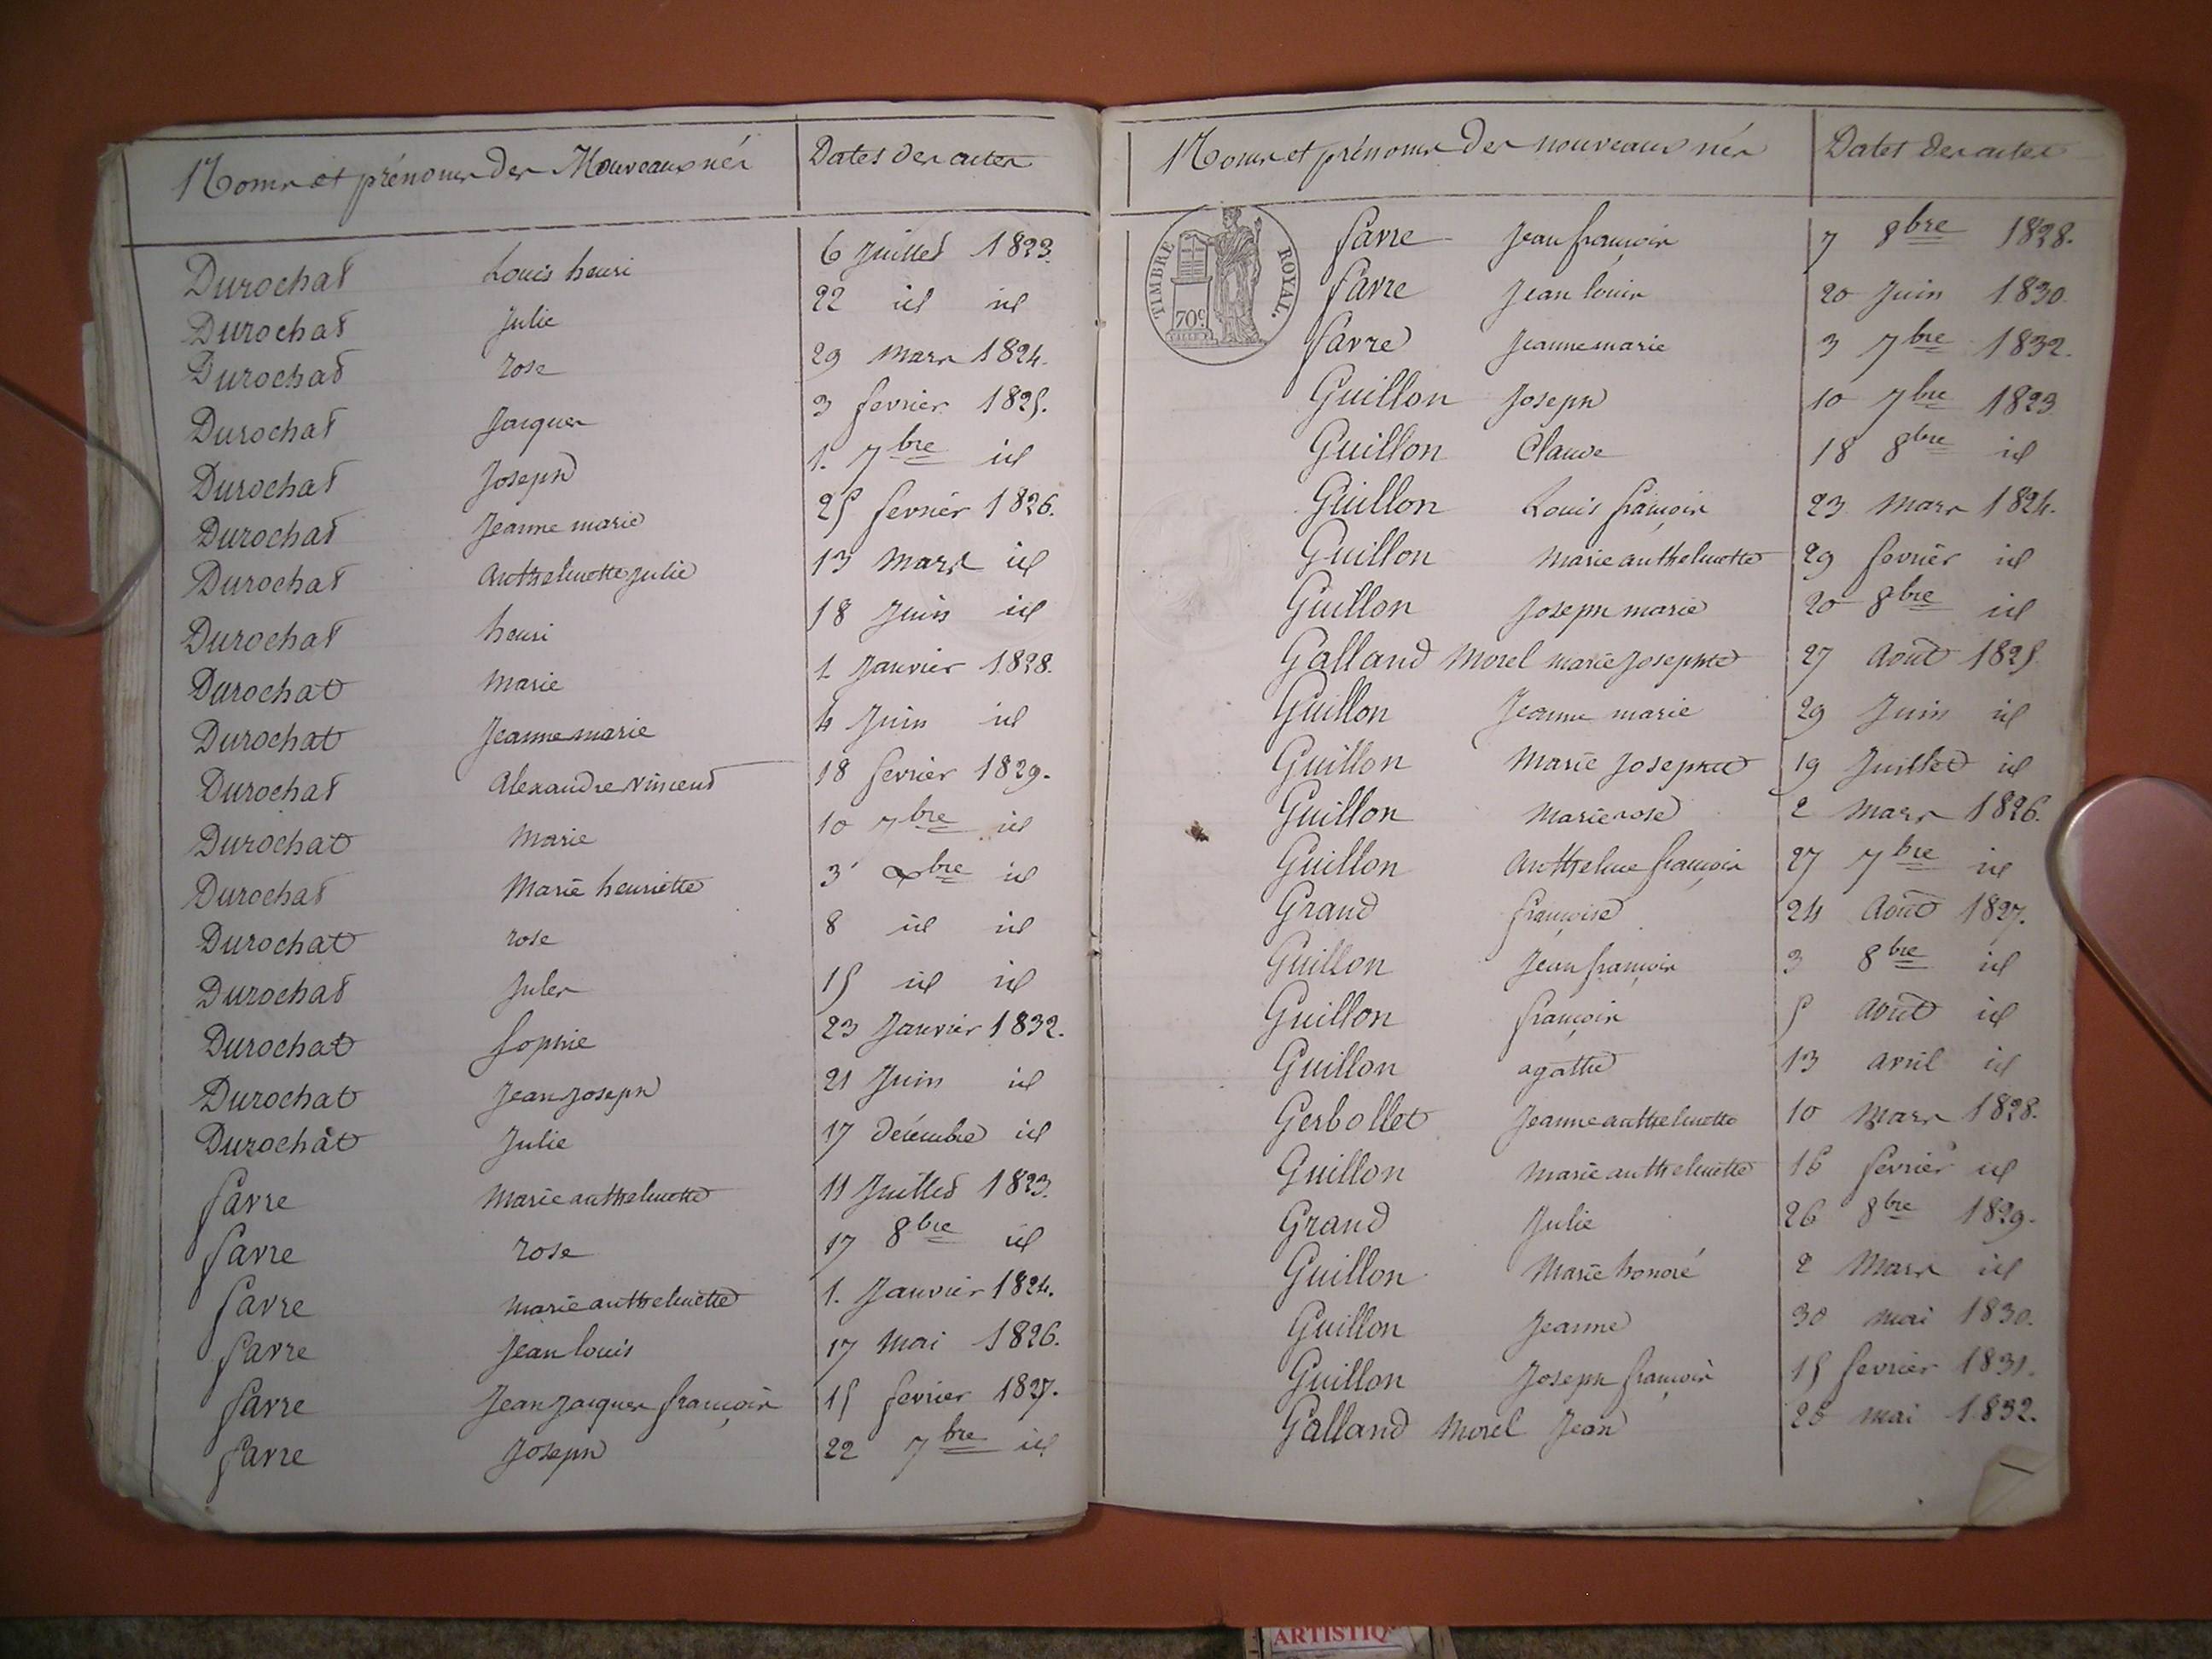 Noms et prénoms des Nouveaux nés Dates des actes
Durochat Louis henri 6 Juillet 1823.
Durochat Julie 22 id id
Durochat rose 29 mars 1824.
Durochat Jacques 3 fevrier 1825.
Durochat Joseph 1. 7bre id
Durochat Jeanne marie 25 fevrier 1826.
Durochat Anthelmette Julie 13 mars id
Durochat henri 18 Juin id
Durochat Marie 1 Janvier 1828.
Durochat Jeanne marie 4 Juin id
Durochat Alexandre Vincent 18 fevrier 1829.
Durochat Marie 10 7bre id
Durochat Marie henriette 3 Xbre id
Durochat rose 8 id id
Durochat Jules 15 id id
Durochat Sophie 23 Janvier 1832.
Durochat Jean Joseph 21 Juin id
Durochat Julie 17 décembre id
favre Marie anthelmette 11 Juillet 1823.
favre rose 17 8bre id
favre marie anthelmette 1. Janvier 1824.
favre Jean louis 17 mai 1826.
favre Jean Jacques françois 15 fevrier 1827.
favre Joseph 22 7bre id
Noms et prénoms des nouveaux nés Dates des actes
TIMBRE ROYAL.
70c.
favre Jean françois 7 8bre 1828.
favre Jean louis 20 Juin 1830.
favre Jeanne marie 3 7bre 1832.
Guillon Joseph 10 7bre 1823
Guillon Claude 18 8bre id
Guillon Louis françois 23 mars 1824.
Guillon Marie anthelmette 29 fevrier id
Guillon Joseph marie 20 8bre id
Galland Morel marie Josephte 27 Août 1825
Guillon Jeanne marie 29 Juin id
Guillon Marie Josephte 19 Juillet id
Guillon Marie rose 2 mars 1826.
Guillon Anthelme françois 27 7bre id
Grand françoise 24 Août 1827.
Guillon Jean françois 3 8bre id
Guillon françois 5 août id
Guillon agathe 13 avril id
Gerbollet Jeanne anthelmette 10 Mars 1828.
Guillon Marie anthelmette 16 fevrier id
Grand Julie 26 8bre 1829.
Guillon Marie honoré 2 Mars id
Guillon Jeanne 30 mai 1830.
Guillon Joseph françois 15 fevrier 1831.
Galland Morel Jean mai 1832.
ARTISTIQ